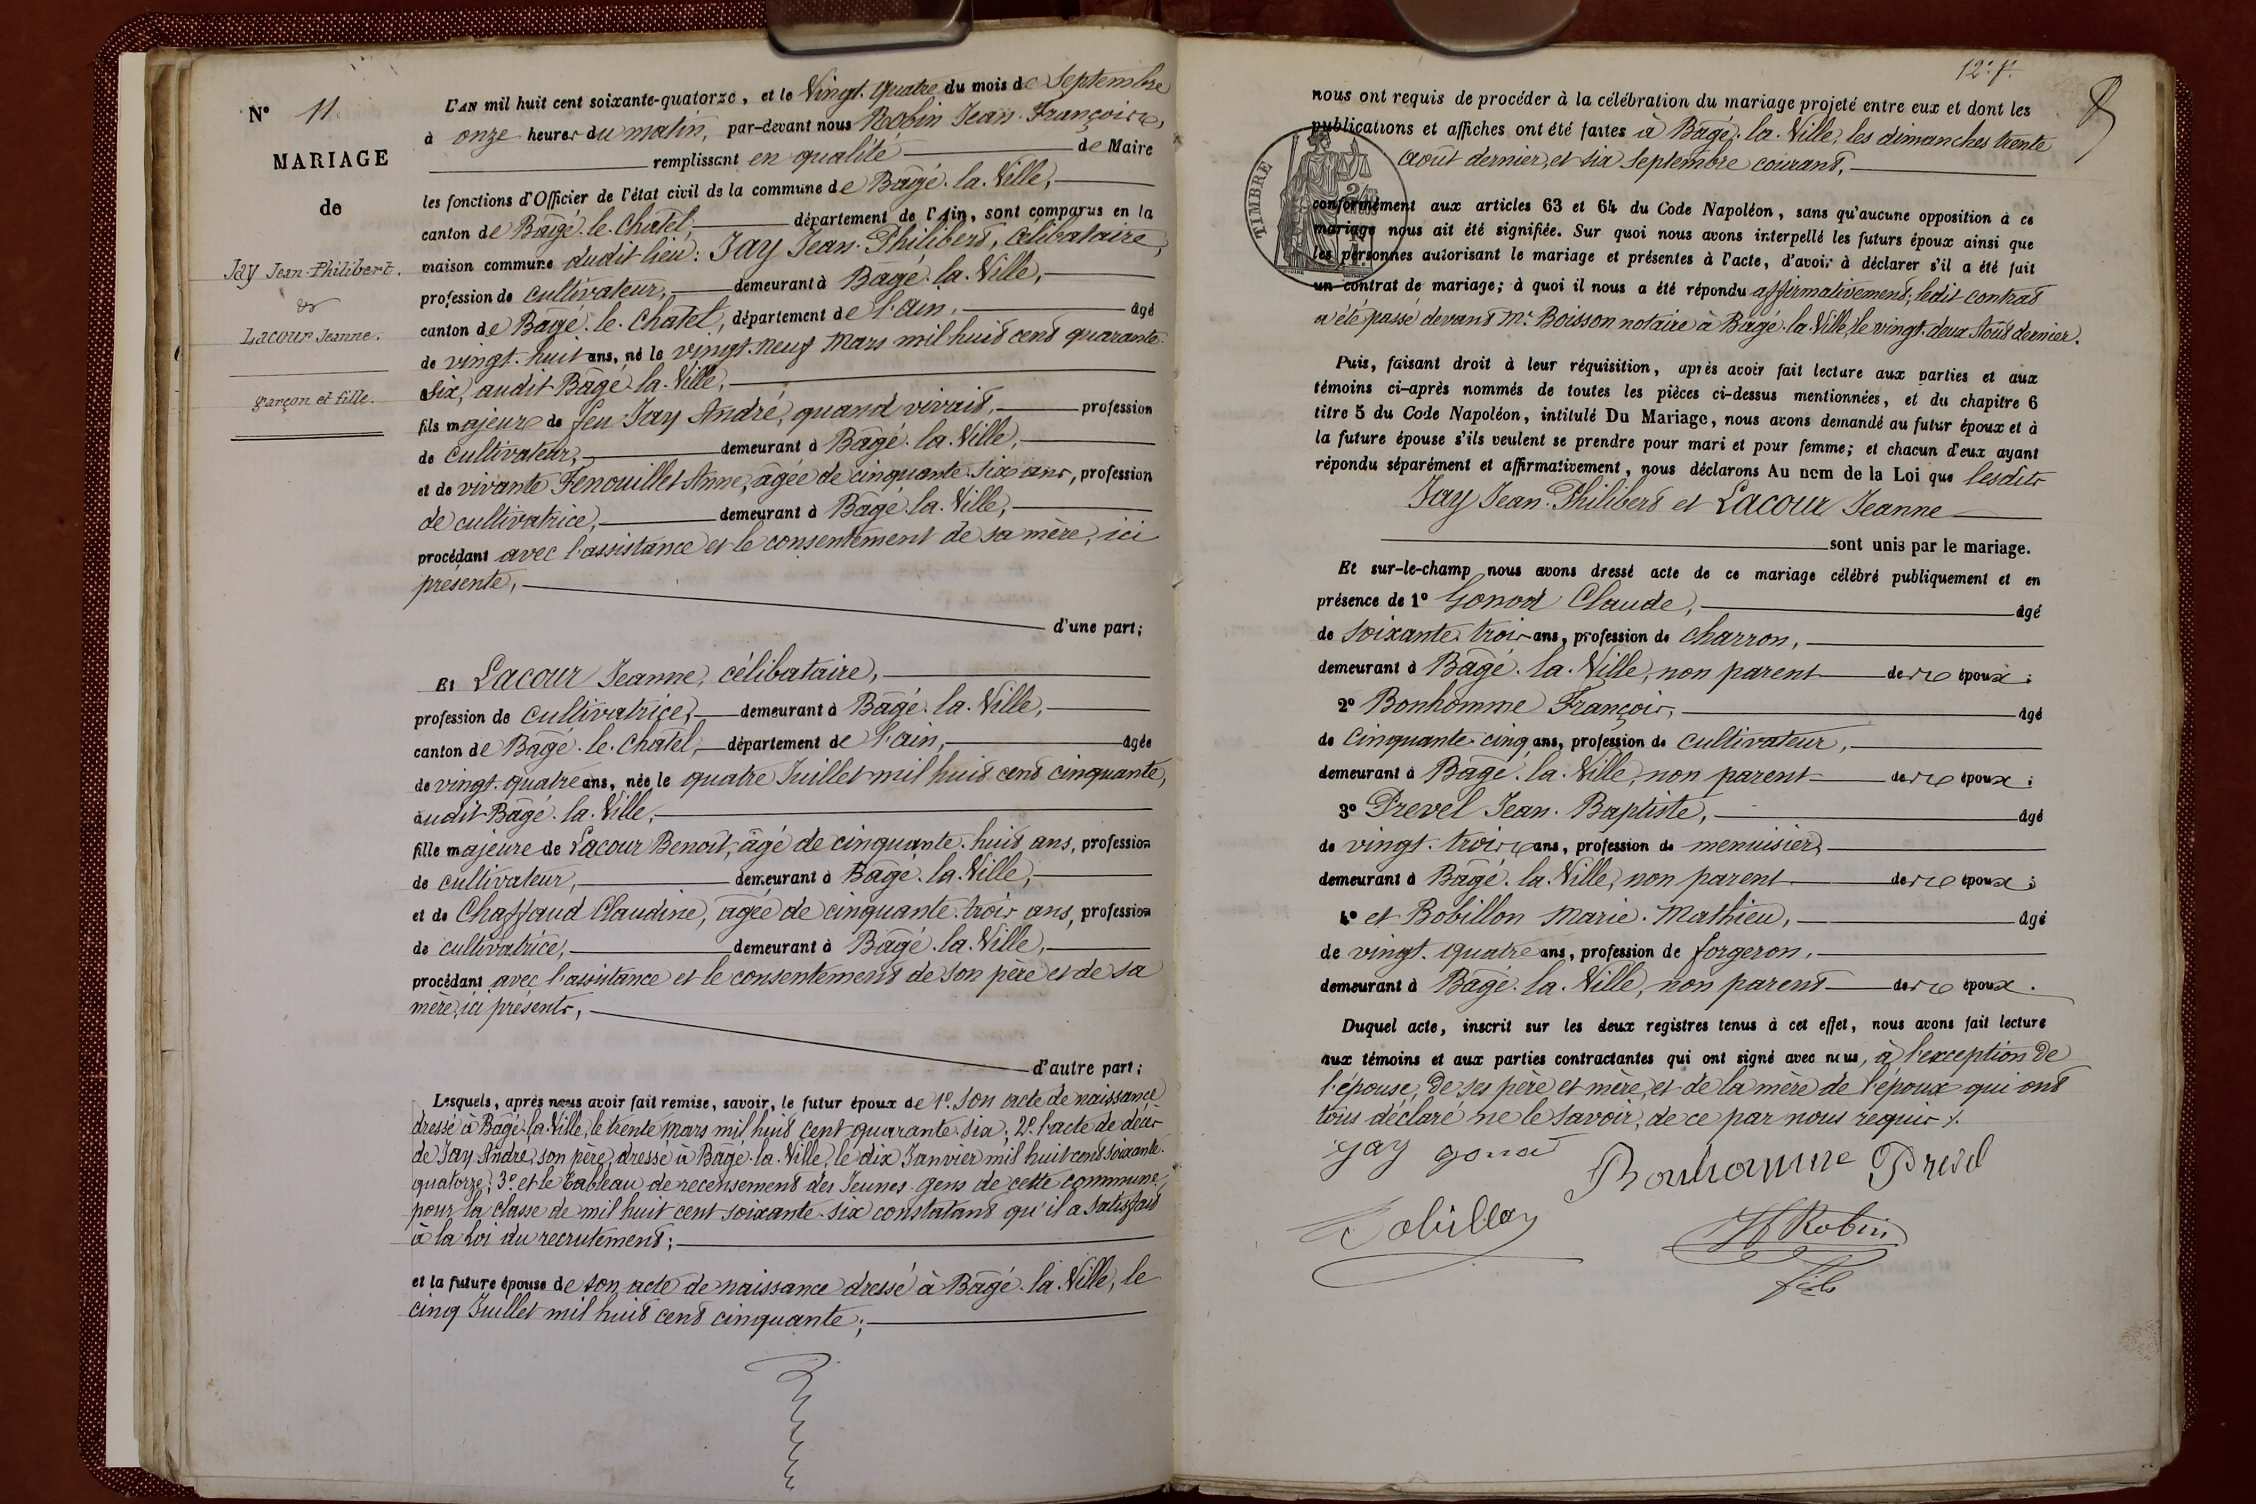 Nº 11.
MARIAGE
de
Jay Jean-Philibert.
&
Lacour Jeanne.
garçon et fille.
L'AN mil huit cent soixante-quatorze, et le Vingt-quatre du mois de Septembre
à onze heures du matin, par-devant nous Robin Jean-François,
remplissant en qualité de Maire
les fonctions d'Officier de l'état civil de la commune de Bâgé-la-Ville,
canton de Bâgé-le-Châtel, département de l'Ain, sont comparus en la
maison commune dudit lieu: Jay Jean-Philibert, Célibataire,
profession de cultivateur, demeurant à Bâgé-la-Ville,
canton de Bâgé-le-Châtel, département de l'ain, âgé
de vingt-huit ans, né le vingt-neuf Mars mil huit cent quarante-
six, audit Bâgé-la-Ville,
fils majeur de feu Jay André, quand vivait, profession
de cultivateur, demeurant à Bâgé-la-Ville,
et de vivante Fenouillet Anne, âgée de cinquante-six ans, profession
de cultivatrice, demeurant à Bâgé-la-Ville,
procédant avec l'assistance et le consentement de sa mère, ici
présente,
d'une part;
Et Lacour Jeanne, célibataire,
profession de cultivatrice, demeurant à Bâgé-la-Ville,
canton de Bâgé-le-Châtel, département de l'ain, âgée
de vingt-quatre ans, née le quatre Juillet mil huit cent cinquante,
audit Bâgé-la-Ville,
fille majeure de Lacour Benoît, âgé de cinquante-huit ans, profession
de cultivateur, demeurant à Bâgé-la-Ville,
et de Chaffaud Claudine, âgée de cinquante-trois ans, profession
de cultivatrice, demeurant à Bâgé-la-Ville,
procédant avec l'assistance et le consentement de son père et de sa
mère, ici présents,
d'autre part;
Lesquels, après nous avoir fait remise, savoir, le futur époux de 1º. Son acte de naissance
dressé à Bâgé-la-Ville, le trente Mars mil huit cent quarante-six; 2º. l'acte de décès
de Jay André, son père, dressé à Bâgé-la-Ville, le dix Janvier mil huit cent soixante-
quatorze; 3º. et le tableau de recensement des Jeunes gens de cette commune,
pour la classe de mil huit cent soixante-six constatant qu'il a satisfait
à la Loi du recrutement;
et la future épouse de son acte de naissance dressé à Bâgé-la-Ville, le
cinq Juillet mil huit cent cinquante;
12º. f.
nous ont requis de procéder à la célébration du mariage projeté entre eux et dont les
publications et affiches ont été faites à Bâgé-la-Ville, les dimanches trente
août dernier, et six Septembre courant,
TIMBRE
conformément aux articles 63 et 64 du Code Napoléon, sans qu'aucune opposition à ce
mariage nous ait été signifiée. Sur quoi nous avons interpellé les futurs époux ainsi que
les personnes autorisant le mariage et présentes à l'acte, d'avoir à déclarer s'il a été fait
un contrat de mariage; à quoi il nous a été répondu affirmativement; ledit contrat
a été passé devant Mr. Boisson notaire à Bâgé-la-Ville, le vingt-deux Août dernier.
Puis, faisant droit à leur réquisition, après avoir fait lecture aux parties et aux
témoins ci-après nommés de toutes les pièces ci-dessus mentionnées, et du chapitre 6
titre 5 du Code Napoléon, intitulé Du Mariage, nous avons demandé au futur époux et à
la future épouse s'ils veulent se prendre pour mari et pour femme; et chacun d'eux ayant
répondu séparément et affirmativement, nous déclarons Au nom de la Loi que lesdits
Jay Jean-Philibert et Lacour Jeanne
sont unis par le mariage.
Et sur-le-champ nous avons dressé acte de ce mariage célébré publiquement et en
présence de 1º Gonod Claude, âgé
de soixante-trois ans, profession de charron,
demeurant à Bâgé-la-Ville, non parent des époux;
2º Bonhomme François, âgé
de cinquante-cinq ans, profession de cultivateur,
demeurant à Bâgé-la-Ville, non parent des époux;
3º Prevel Jean-Baptiste, âgé
de vingt-trois ans, profession de menuisier,
demeurant à Bâgé-la-Ville, non parent des époux;
4º et Bobillon Marie-Mathieu, âgé
de vingt-quatre ans, profession de forgeron,
demeurant à Bâgé-la-Ville, non parent des époux.
Duquel acte, inscrit sur les deux registres tenus à cet effet, nous avons fait lecture
aux témoins et aux parties contractantes qui ont signé avec nous, à l'exception de
l'épouse, de ses père et mère, et de la mère de l'époux qui ont
tous déclaré ne le savoir, de ce par nous requis.
Jay gonod Bonhomme Prevel
Bobillon JF Robin
fils